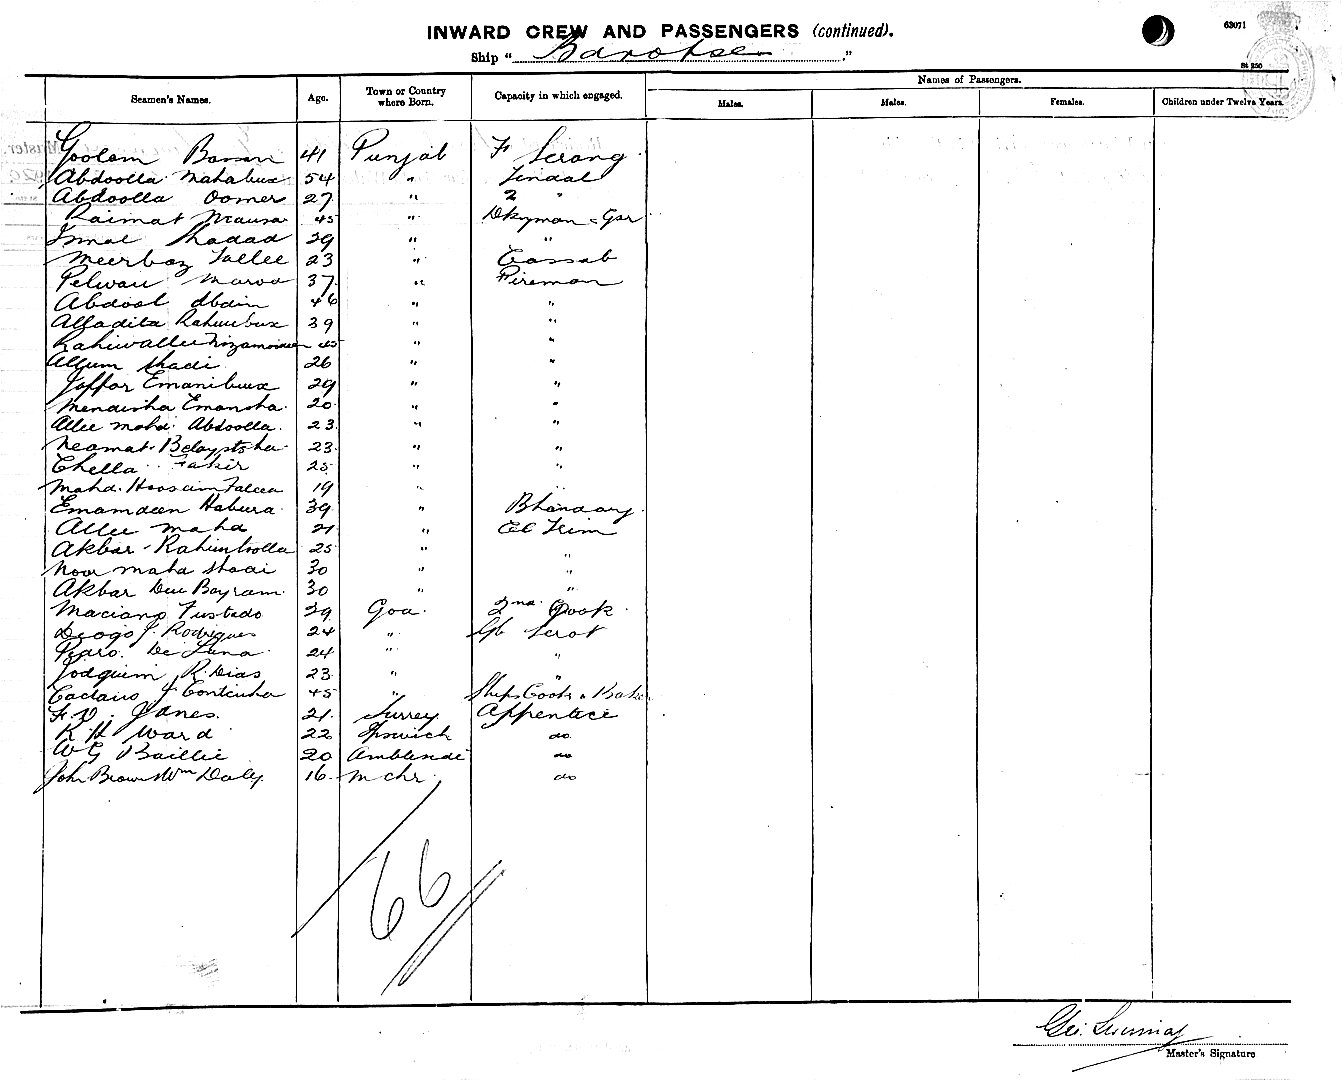 63071
INWARD CREW AND PASSENGERS (continued).
Ship " Barotse "
St 250
Seamen's Names. Age. Town or Country where Born. Capacity in which engaged. Names of Passengers.
Males. Males. Females. Children under Twelve Years.
Goolam 41 Punjab F Serang
Abdoolla Mahabux 54 " Tindal
Abdoolla Oomer 27 " 2 "
Raimat Mausa 45 " Dkyman & Gsr
Ismal Shadad 39 " "
Meerbaz Vallee 23 " Cassab
Pelwan 37 " Fireman
Abdool Abdin 46 " "
Alladita Rahimbux 39 " "
45 " "
Allum Shadi 26 " "
Joffar Emanibux 29 " "
Mendisha Emamsha 20 " "
Allee Mohd. Abdoolla. 23 " "
Neamat 23 " "
Chella Fakir 25 " "
Mahd. Hoosein 19 " "
Emamdeen Habura 39 " Bhandary
Allee Maha 21 "
Akbar Rahimtoolla 25 " "
Noor Maha Shadi 30 " "
Akbar Bayram 30 " "
Maciano Furtado 39 Goa. 2nd Cook
Diogo J. Rodrigues 24 "
De Luna 24 " "
Joaquim R. Dias 23 " "
Caetano J 45 " Ships Cook & Baker
F. V. Janes. 21 Surrey Apprentice
R H Ward 22 Ipswich do
W G Baillie 20 do
John Brown Wm Daly 16 Mchr. do
66
Geo.
Master's Signature